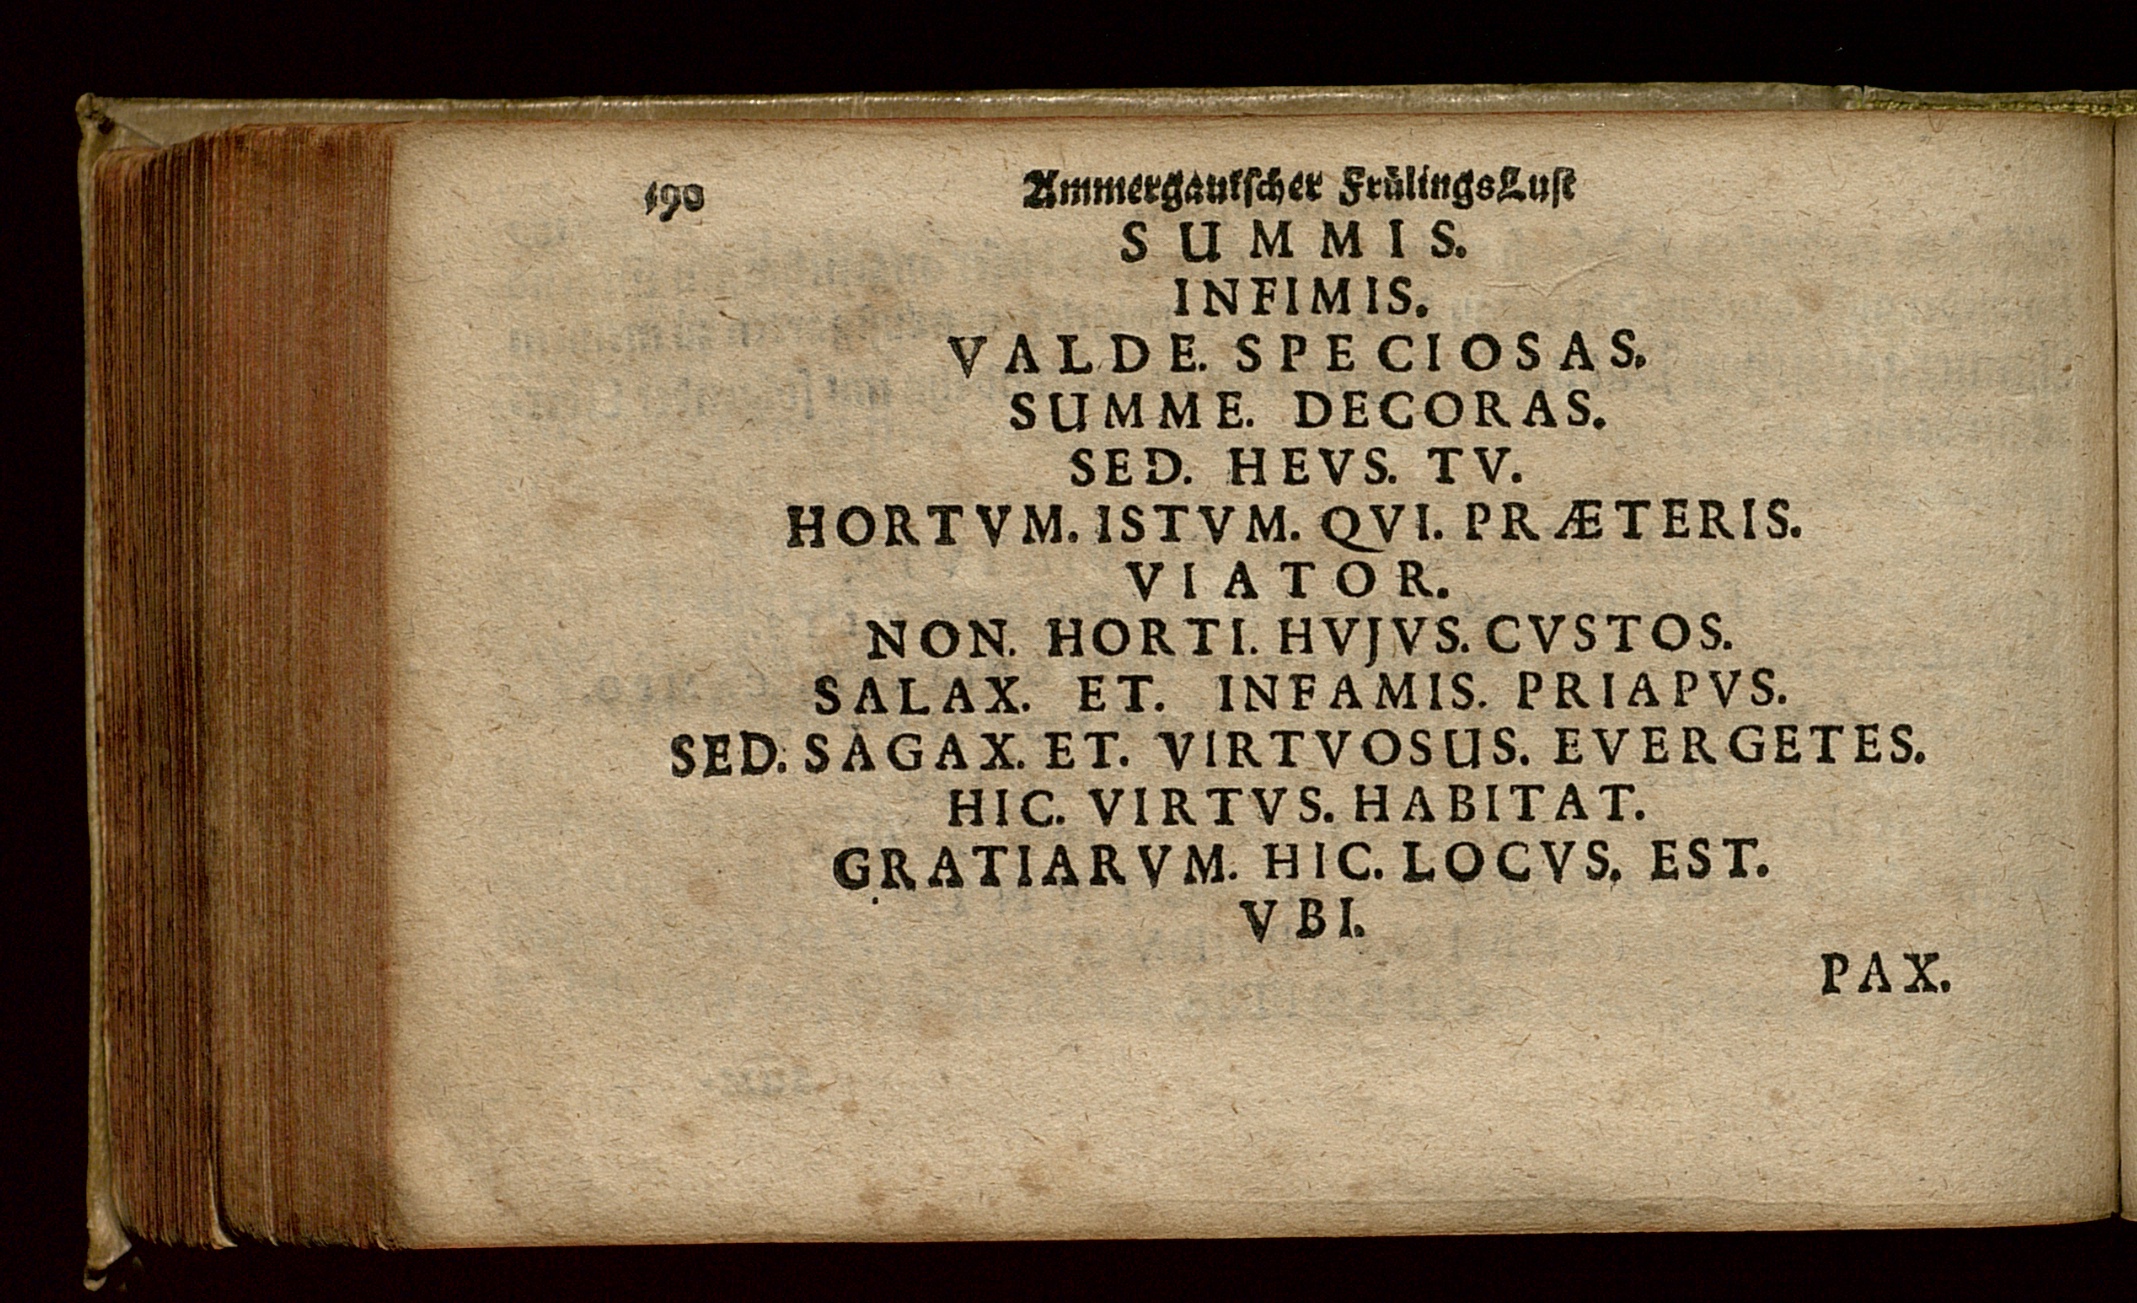 190 Ammergauischer FrülingsLust
SUMMIS.
INFIMIS.
VALDE. SPECIOSAS.
SUMME. DECORAS.
SED. HEVS. TV.
HORTVM. ISTVM. QVI. PRÆTERIS.
VIATOR.
NON. HORTI. HVJVS. CVSTOS.
SALAX. ET. INFAMIS. PRIAPVS.
SED. SAGAX. ET. VIRTVOSUS. EVERGETES.
HIC. VIRTVS. HABITAT.
GRATIARVM. HIC. LOCVS. EST.
VBI.
PAX.